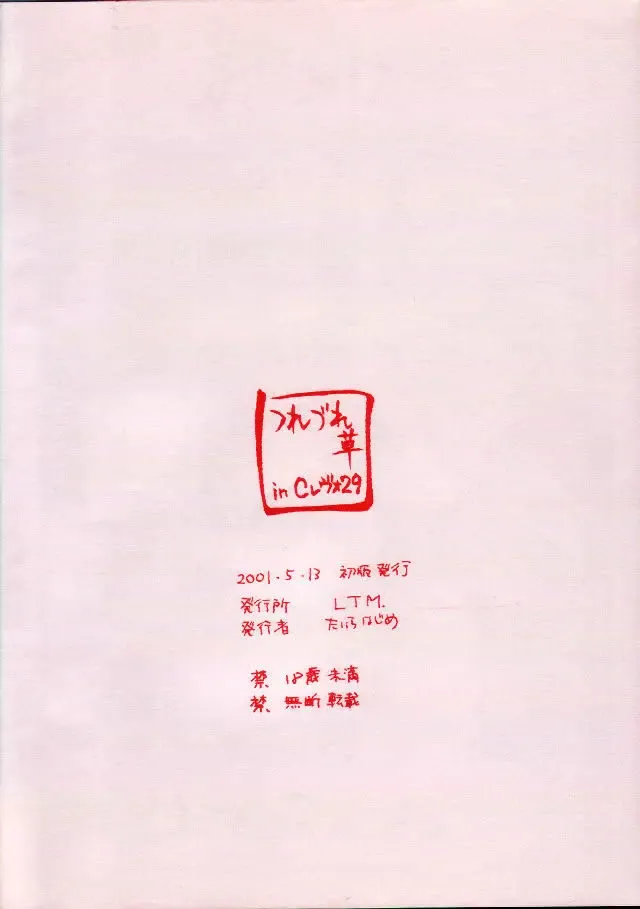 つれづれ
草
in Cレヴォ29
2001.5.13 初版発行
発行所 LTM.
発行者 たいらはじめ
禁 18歳未満
禁 無断転載